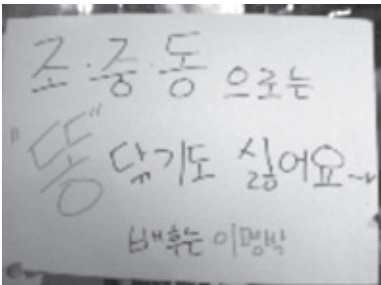 조·중·동 으로는
"똥" 닦기도 싫어요~
배후는 이명박